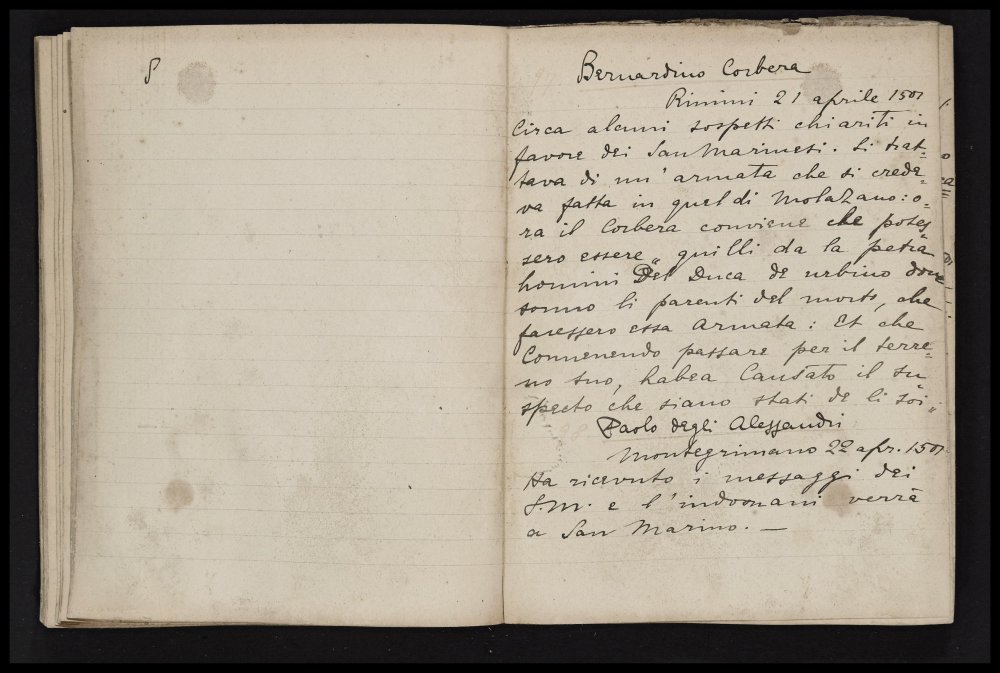 8
Bernardino Corbera
Rimini 21 aprile 1501
Circa alcuni sospetti chiariti in
favore dei San Marinesi. Si trat=
tava di un' armata che si crede=
va fatta in quel di Molazano: o=
ra il Corbera conviene che potes
sero essere „ quilli da la petra
homini Del Duca de urbino dove
sonno li parenti del morto, che
facessero essa armata: Et che
Convenendo passare per il terre=
no suo, habea Causato il su
specto che siano stati de li soi „
Paolo degli Alessandri
Montegrimano 22 apr. 1501
Ha ricevuto i messaggi dei
S.M. e l'indomani verrà
a San Marino. —